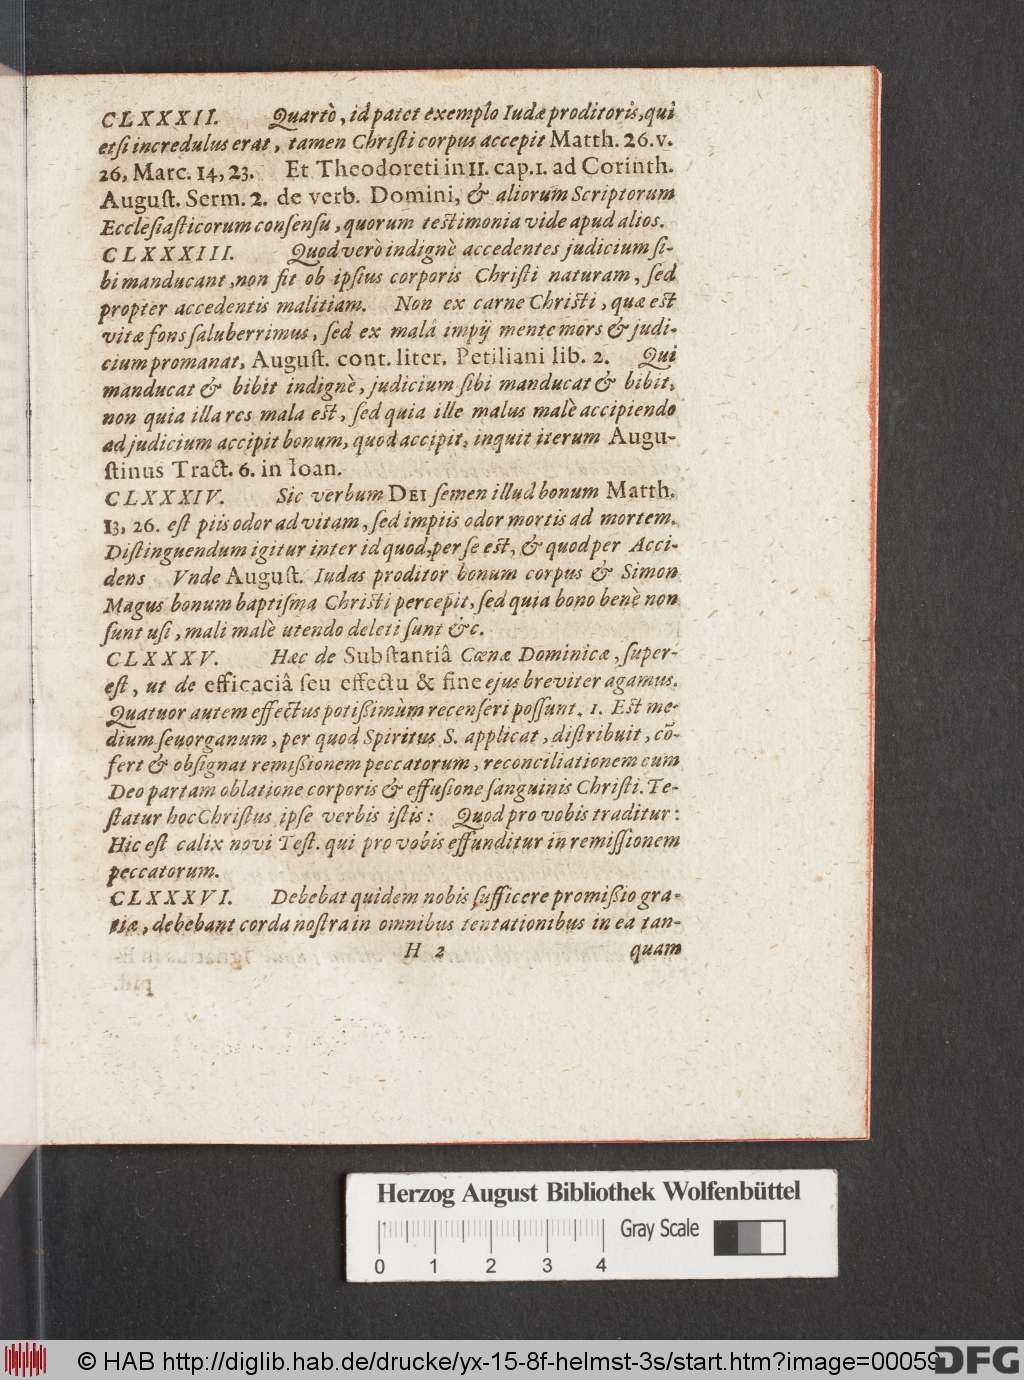 CLXXXII. Quartò, id patet exemplo Iudæ proditoris, qui
etsi incredulus erat, tamen Christi corpus accepit Matth. 26. v.
26, Marc. 14, 23. Et Theodoreti in II. cap. 1. ad Corinth.
August. Serm. 2. de verb. Domini, & aliorum Scriptorum
Ecclesiasticorum consensu, quorum testimonia vide apud alios.
CLXXXIII. Quod verò indignè accedentes judicium si-
bi manducant, non fit ob ipsius corporis Christi naturam, sed
propter accedentis malitiam. Non ex carne Christi, quæ est
vitæ fons saluberrimus, sed ex malâ impij mente mors & judi-
cium promanat, August. cont. liter. Petiliani lib. 2. Qui
manducat & bibit indignè, judicium sibi manducat & bibit,
non quia illa res mala est, sed quia ille malus malè accipiendo
ad judicium accipit bonum, quod accipit, inquit iterum Augu-
stinus Tract. 6. in Ioan.
CLXXXIV. Sic verbum DEI semen illud bonum Matth.
13, 26. est piis odor ad vitam, sed impiis odor mortis ad mortem.
Distinguendum igitur inter id quod, per se est, & quod per Acci-
dens Vnde August. Iudas proditor bonum corpus & Simon
Magus bonum baptisma Christi percepit, sed quia bono benè non
sunt usi, mali malè utendo deleti sunt &c.
CLXXXV. Hæc de Substantiâ Cœnæ Dominicæ, super-
est, ut de efficaciâ seu effectu & fine ejus breviter agamus.
Quatuor autem effectus potißimùm recenseri possunt. 1. Est me-
dium seu organum, per quod Spiritus S. applicat, distribuit, cō-
fert & obsignat remißionem peccatorum, reconciliationem cum
Deo partam oblatione corporis & effusione sanguinis Christi. Te-
statur hoc Christus ipse verbis istis: Quod pro vobis traditur:
Hic est calix novi Test. qui pro vobis effunditur in remissionem
peccatorum.
CLXXXVI. Debebat quidem nobis sufficere promißio gra-
tiæ, debebant corda nostra in omnibus tentationibus in ea tan-
H 2 quam
Herzog August Bibliothek Wolfenbüttel
Gray Scale
0 1 2 3 4
© HAB http://diglib.hab.de/drucke/yx-15-8f-helmst-3s/start.htm?image=00059
DFG